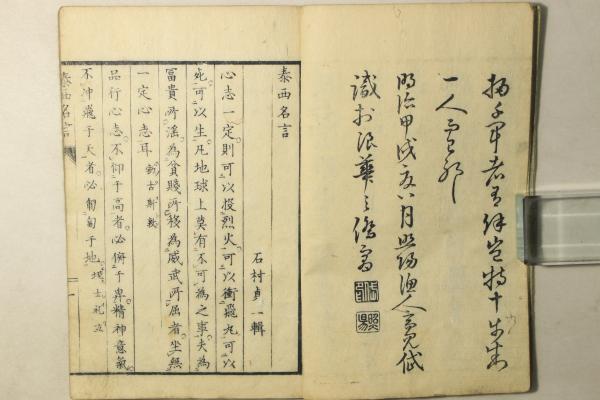 掃千軍者
一人
明治甲戌夏八月照陽漁人
識於浪華之僑寓
泰西名言
石村貞一輯
心志一定則可以慢烈火可以衝飛丸可以
死可以生凡地球上莫有不可為之事夫為
富貴所溺為貧賤所移為威武所屈者坐無
一定心志耳 勃古斯敦
品行心志不仰于高者必俯于卑精神意氣
不沖飛于天者必匍匐于地 士礼立
泰西名言
一